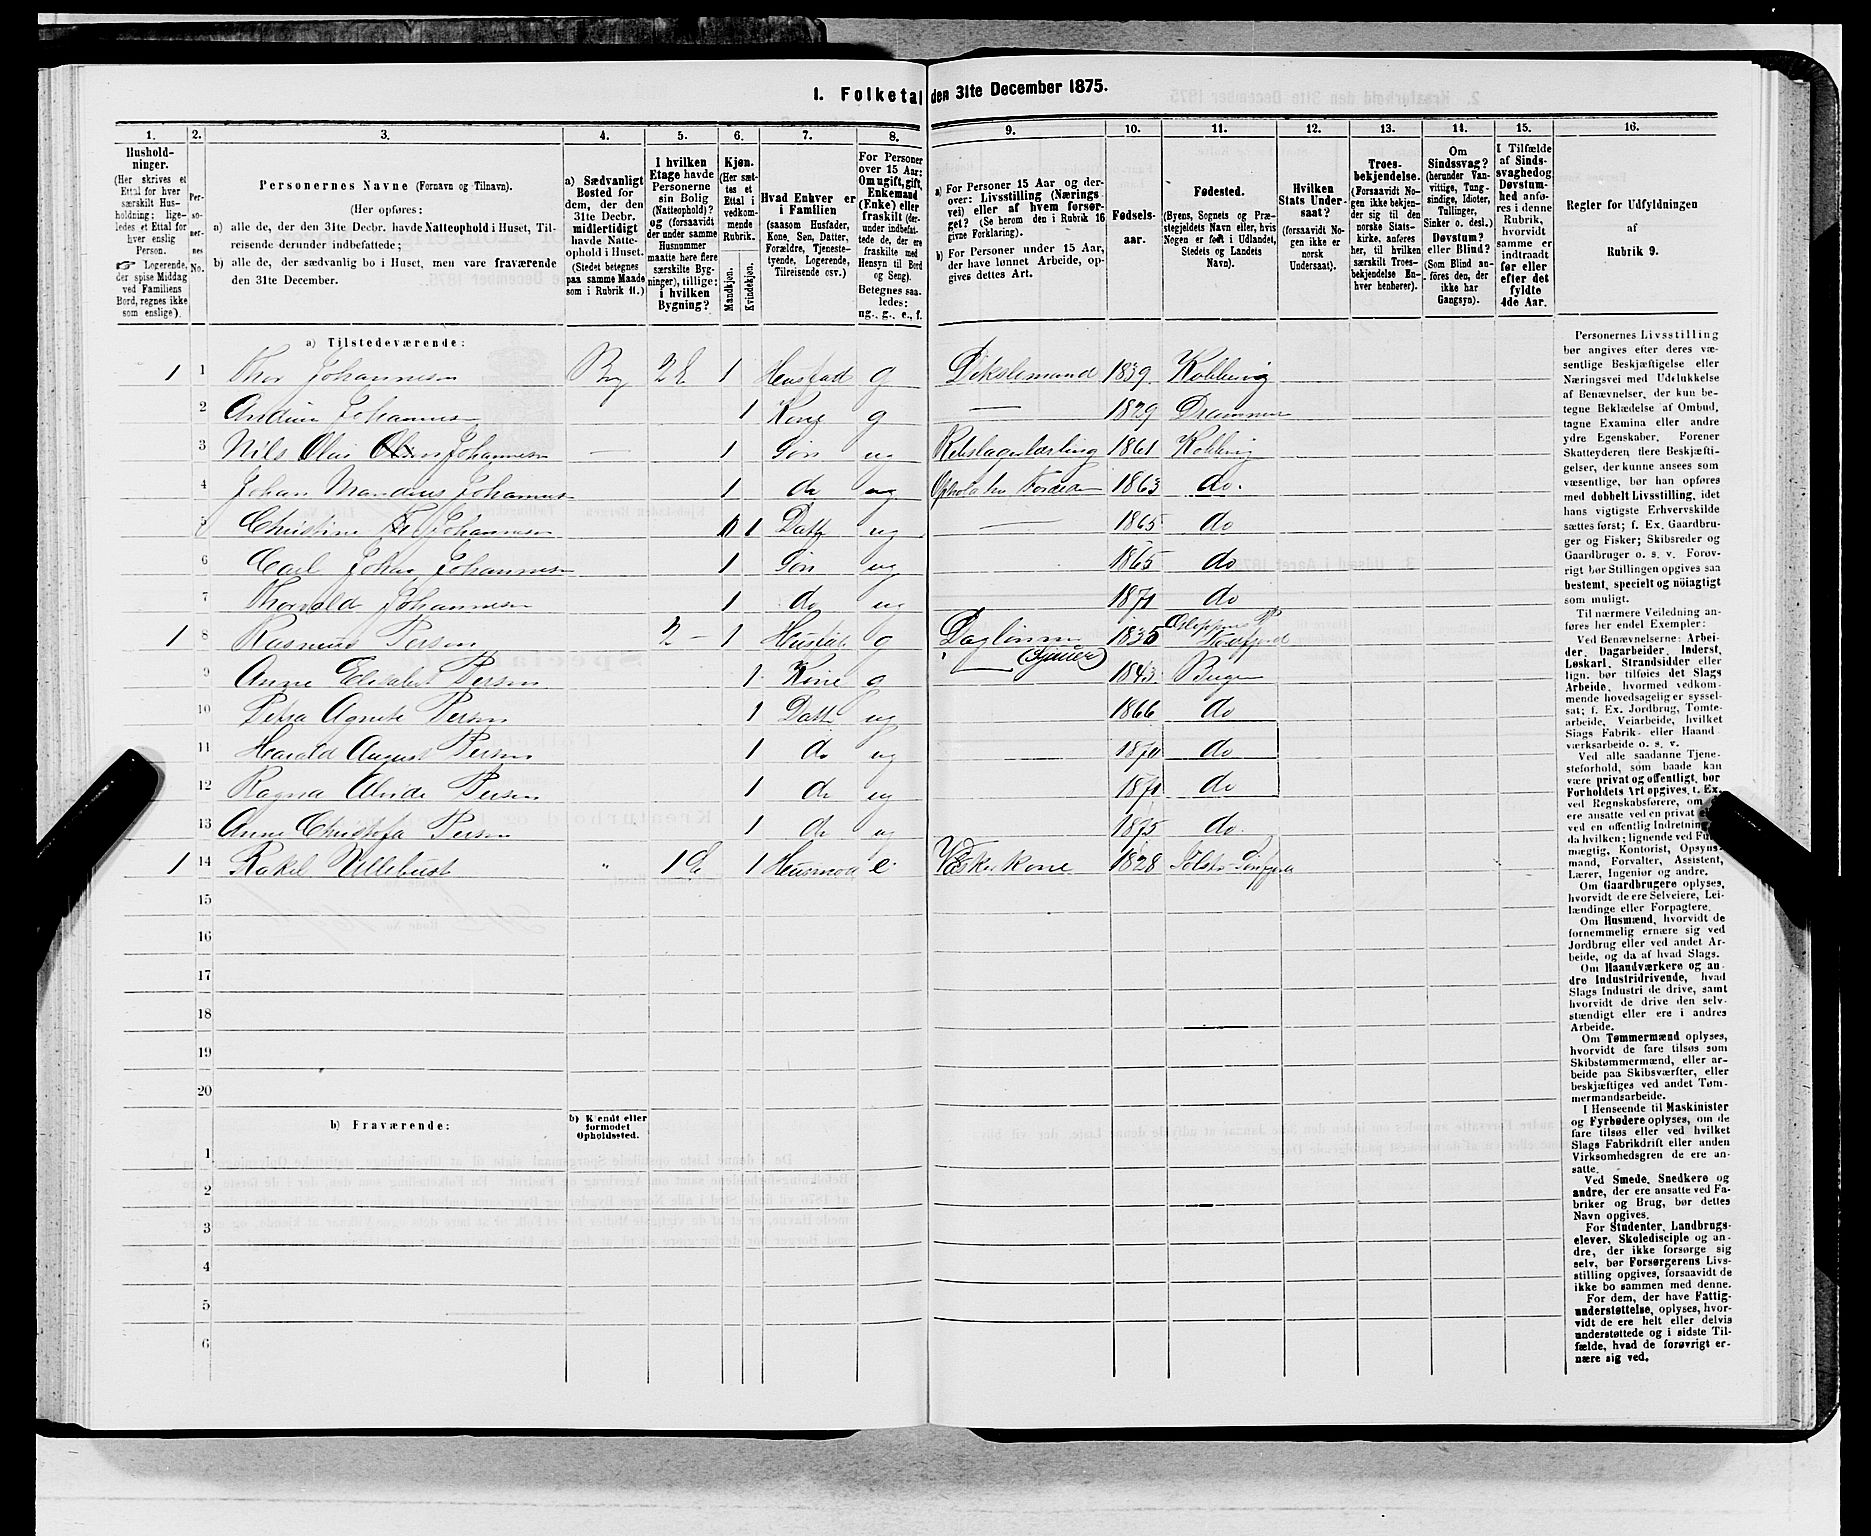 1. Folketal den 31te December 1875.
1. 2. 3. 4. 5. 6. 7. 8. 9. 10. 11. 12. 13. 14. 15. 16.
Hushold-
ninger.
(Her skrives et
Ettal for hver
særskilt Hus-
holdning; lige-
ledes et Ettal for
hver enslig
Person.
☞ Logerende,
der spise Middag
ved Familiens
Bord, regnes ikke
som enslige).
Per-
so-
ner-
nes
No.
Personernes Navne (Fornavn og Tilnavn).
(Her opføres:
a) alle de, der den 31te Decbr. havde Natteophold i Huset, Til-
reisende derunder indbefattede;
b) alle de, der sædvanlig bo i Huset, men vare fraværende
den 31te December.
a) Sædvanligt
Bosted for
dem, der den
31te Decbr.
midlertidigt
havde Natte-
ophold i Huset.
(Stedet betegnes
paa samme Maade
som i Rubrik 11.)
I hvilken
Etage havde
Personerne
sin Bolig
(Natteophold)?
og (forsaavidt
der under samme
Husnummer
maatte høre flere
særskilte Byg-
ninger), tillige:
i hvilken
Bygning?
Kjøn.
(Her sæt-
tes et
Ettal i
vedkom-
mende
Rubrik.
Mandkjøn.
Kvindekjøn.
Hvad Enhver er
i Familien
(saasom Husfader,
Kone, Søn, Datter,
Forældre, Tjeneste-
tyende, Logerende,
Tilreisende osv.)
For Personer
over 15 Aar:
Om ugift, gift,
Enkemand
(Enke) eller
fraskilt (der-
under indbefat-
tede de, der ere
fraskilte med
Hensyn til Bord
og Seng).
Betegnes saa-
ledes:
ug., g., e., f.
a) For Personer 15 Aar og der-
over: Livsstilling (Nærings-
vei) eller af hvem forsør-
get? (Se herom den i Rubrik 16
givne Forklaring).
b) For Personer under 15 Aar,
der have lønnet Arbeide, op-
gives dettes Art.
Fødsels-
aar.
Fødested.
(Byens, Sognets og Præ-
stegjeldets Navn eller, hvis
Nogen er født i Udlandet,
Stedets og Landets
Navn).
Hvilken
Stats Under-
saat?
(forsaavidt No-
gen ikke er
norsk
Undersaat).
Troes-
bekjendelse.
(Forsaavidt No-
gen ikke bekjen-
der sig til den
norske Stats-
kirke, anføres
her, til hvilken
særskilt Troes-
bekjendelse En-
hver henhører).
Om
Sindssvag?
(herunder Van-
vittige, Tung-
sindige, Idioter,
Tullinger,
Sinker o. desl.)
Døvstum?
eller Blind?
(Som Blind an-
føres den, der
ikke har
Gangsyn).
I Tilfælde
af Sinds-
svaghed og
Døvstum-
hed anfø-
res i denne
Rubrik,
hvorvidt
samme er
indtraadt
før eller
efter det
fyldte
4de Aar.
Regler for Udfyldningen
af
Rubrik 9.
a) Tilstedeværende:
1 1 Thor Johannesen By 2 E 1 Husfad g 1839 Kobbervig
2 Johannesen 1 Kone g — 1829 Drammen
3 Nils Olai Johannesen — 1 Søn ug Rebslagerlærling 1861 Kobbervig
4 Johan Mandius Johannesen 1 do ug 1863 do.
5 Christine Johannesen 1 Datt ug — 1865 do
6 Carl Johan Johannesen 1 Søn ug 1865 do
7 Thorvald Johannesen 1 do ug 1871 do
1 8 Rasmus Person 2 - 1 Husfad g Daglønner 1835 Nordfjord
9 Anne Elisabet Person 1 Kone g 1843 Bergen
10 Petra Agnete Person 1 Datt ug 1866 do
11 Harald August Person 1 do ug 1870 do
12 Ragna Person 1 do ug 1871 do
13 Anne Christofa Person 1 do ug 1875 do.
1 14 Rakel Ullebust " 1 E 1 Husmod e. Vaskerkone 1828 Jølster Søndfjord
15
16
17
18
19
20
b) Fraværende:
b) Kjendt eller
formodet
Opholdssted.
1
2
3
4
5
6
Personernes Livsstilling
bør angives efter deres væ-
sentlige Beskjæftigelse eller
Næringsvei med Udelukkelse
af Benævnelser, der kun be-
tegne Beklædelse af Ombud,
tagne Examina eller andre
ydre Egenskaber. Forener
Skatteyderen flere Beskjæfti-
gelser, der kunne ansees som
væsentlige, bør han opføres
med dobbelt Livsstilling, idet
hans vigtigste Erhvervskilde
sættes først; f. Ex. Gaardbru-
ger og Fisker; Skibsreder og
Gaardbruger o. s. v. Forøv-
rigt bør Stillingen opgives saa
bestemt, specielt og nöiagtigt
som muligt.
Til nærmere Veiledning an-
føres her endel Exempler:
Ved Benævnelserne: Arbei-
der, Dagarbeider, Inderst,
Løskarl, Strandsidder eller
lign. bør tilføies det Slags
Arbeide, hvormed vedkom-
mende hovedsagelig er syssel-
sat; f. Ex. Jordbrug, Tomte-
arbeide, Veiarbeide, hvilket
Slags Fabrik- eller Haand
værksarbeide o. s. v.
Ved alle saadanne Tjene-
steforhold, som baade kan
være privat og offentligt, bør
Forholdets Art opgives, t. Ex.
ved Regnskabsførere, om
ere ansatte ved en privat
ved en offentlig Indretning
da hvilken; lignende ved
mægtig, Kontorist, Opsyns-
mand, Forvalter, Assistent,
Lærer, Ingeniør og andre.
Om Gaardbrugere oplyses,
hvorvidt de ere Selveiere, Lei-
lændinge eller Forpagtere.
Om Husmænd, hvorvidt de
fornemmelig ernære sig ved
Jordbrug eller ved andet Ar-
beide, og da af hvad Slags.
Om Haandværkere og an-
dre Industridrivende, hvad
Slags Industri de drive, samt
hvorvidt de drive den selv-
stændigt eller ere i andres
Arbeide.
Om Tømmermænd oplyses,
hvorvidt de fare tilsøs som
Skibstømmermænd, eller ar-
beide paa Skibsværfter, eller
beskjæftiges ved andet Tøm-
mermandsarbeide.
I Henseende til Maskinister
og Fyrbødere oplyses, om de
fare tilsøs eller ved hvilket
Slags Fabrikdrift eller anden
Virksomhedsgren de ere an-
satte.
Ved Smede, Snedkere og
andre, der ere ansatte ved Fa-
briker og Brug, bør dettes
Navn opgives.
For Studenter, Landbrugs-
elever, Skoledisciple og an-
dre, der ikke forsørge sig
selv, bør Forsørgerens Livs-
stilling opgives, forsaavidt de
ikke bo sammen med denne.
For dem, der have Fattig-
understøttelse, oplyses, hvor-
vidt de ere helt eller delvis
understøttede og i sidste Til-
fælde, hvad de forøvrigt er-
nære sig ved.